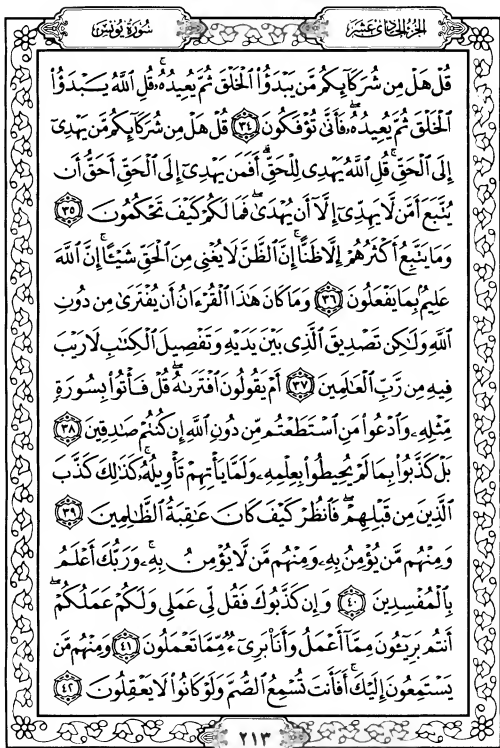 الجزء الحادي عشر
سورة يونس
قُلْ هَلْ مِن شُرَكَآئِكُم مَّن يَبْدَؤُا۟ ٱلْخَلْقَ ثُمَّ يُعِيدُهُۥ ۚ قُلِ ٱللَّهُ يَبْدَؤُا۟
ٱلْخَلْقَ ثُمَّ يُعِيدُهُۥ ۖ فَأَنَّىٰ تُؤْفَكُونَ ٣٤ قُلْ هَلْ مِن شُرَكَآئِكُم مَّن يَهْدِىٓ
إِلَى ٱلْحَقِّ ۚ قُلِ ٱللَّهُ يَهْدِى لِلْحَقِّ ۗ أَفَمَن يَهْدِىٓ إِلَى ٱلْحَقِّ أَحَقُّ أَن
يُتَّبَعَ أَمَّن لَّا يَهِدِّىٓ إِلَّآ أَن يُهْدَىٰ ۖ فَمَا لَكُمْ كَيْفَ تَحْكُمُونَ ٣٥
وَمَا يَتَّبِعُ أَكْثَرُهُمْ إِلَّا ظَنًّا ۚ إِنَّ ٱلظَّنَّ لَا يُغْنِى مِنَ ٱلْحَقِّ شَيْـًٔا ۚ إِنَّ ٱللَّهَ
عَلِيمٌۢ بِمَا يَفْعَلُونَ ٣٦ وَمَا كَانَ هَـٰذَا ٱلْقُرْءَانُ أَن يُفْتَرَىٰ مِن دُونِ
ٱللَّهِ وَلَـٰكِن تَصْدِيقَ ٱلَّذِى بَيْنَ يَدَيْهِ وَتَفْصِيلَ ٱلْكِتَـٰبِ لَا رَيْبَ
فِيهِ مِن رَّبِّ ٱلْعَـٰلَمِينَ ٣٧ أَمْ يَقُولُونَ ٱفْتَرَىٰهُ ۖ قُلْ فَأْتُوا۟ بِسُورَةٍ
مِّثْلِهِۦ وَٱدْعُوا۟ مَنِ ٱسْتَطَعْتُم مِّن دُونِ ٱللَّهِ إِن كُنتُمْ صَـٰدِقِينَ ٣٨
بَلْ كَذَّبُوا۟ بِمَا لَمْ يُحِيطُوا۟ بِعِلْمِهِۦ وَلَمَّا يَأْتِهِمْ تَأْوِيلُهُۥ ۚ كَذَٰلِكَ كَذَّبَ
ٱلَّذِينَ مِن قَبْلِهِمْ ۖ فَٱنظُرْ كَيْفَ كَانَ عَـٰقِبَةُ ٱلظَّـٰلِمِينَ ٣٩
وَمِنْهُم مَّن يُؤْمِنُ بِهِۦ وَمِنْهُم مَّن لَّا يُؤْمِنُ بِهِۦ ۚ وَرَبُّكَ أَعْلَمُ
بِٱلْمُفْسِدِينَ ٤٠ وَإِن كَذَّبُوكَ فَقُل لِّى عَمَلِى وَلَكُمْ عَمَلُكُمْ ۖ
أَنتُم بَرِيٓـُٔونَ مِمَّآ أَعْمَلُ وَأَنَا۠ بَرِىٓءٌ مِّمَّا تَعْمَلُونَ ٤١ وَمِنْهُم مَّن
يَسْتَمِعُونَ إِلَيْكَ ۚ أَفَأَنتَ تُسْمِعُ ٱلصُّمَّ وَلَوْ كَانُوا۟ لَا يَعْقِلُونَ ٤٢
٢١٣